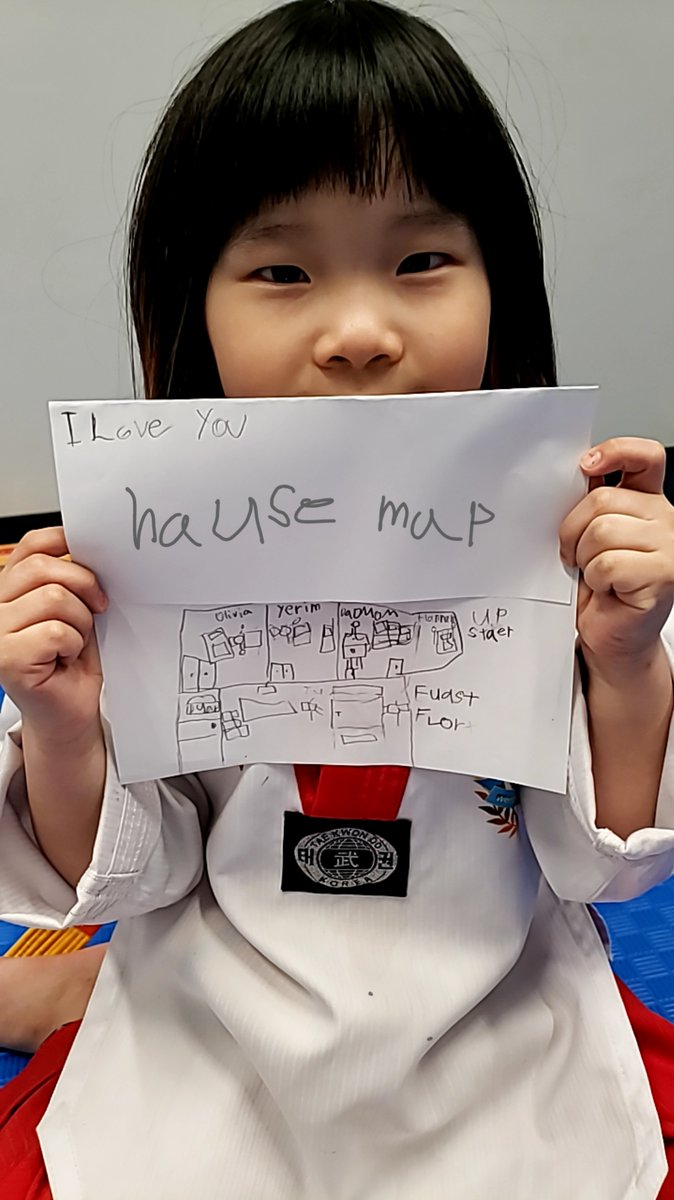 I Love YOU
hause map
Olivia Yerim DaDMOM
UP
staer
TV
Fuast
FLOr
TAEKWONDO
태 武 권
KOREA